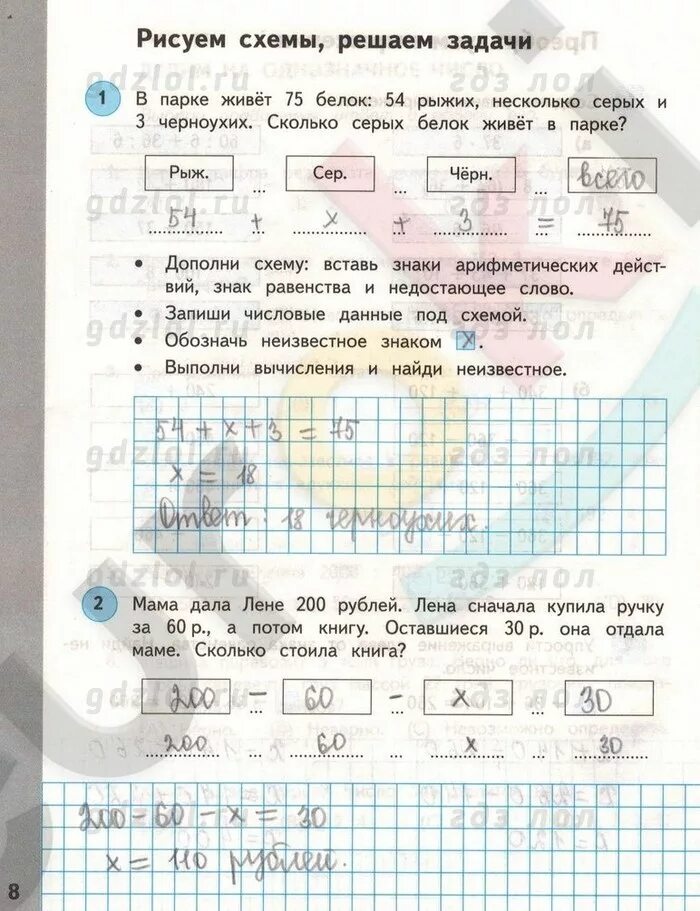 Рисуем схемы, решаем задачи
gdzlol.ru гдз лол
1 В парке живёт 75 белок: 54 рыжих, несколько серых и
3 черноухих. Сколько серых белок живёт в парке?
Рыж. ... Сер. ... Чёрн. ... всего
gdzlol.ru гдз лол
54 + x + 3 = 75
• Дополни схему: вставь знаки арифметических дейст-
вий, знак равенства и недостающее слово.
• Запиши числовые данные под схемой.
gdzlol.ru гдз лол
• Обозначь неизвестное знаком x.
• Выполни вычисления и найди неизвестное.
54 + x + 3 = 75
gdzlol.ru гдз лол
x = 18
Ответ: 18 черноухих.
gdzlol.ru гдз лол
2 Мама дала Лене 200 рублей. Лена сначала купила ручку
за 60 р., а потом книгу. Оставшиеся 30 р. она отдала
маме. Сколько стоила книга?
gdzlol.ru гдз лол
200 – 60 – x ... 30
200 ... 60 ... x ... 30
200 – 60 – x = 30
gdzlol.ru гдз лол
x = 110 рублей.
8